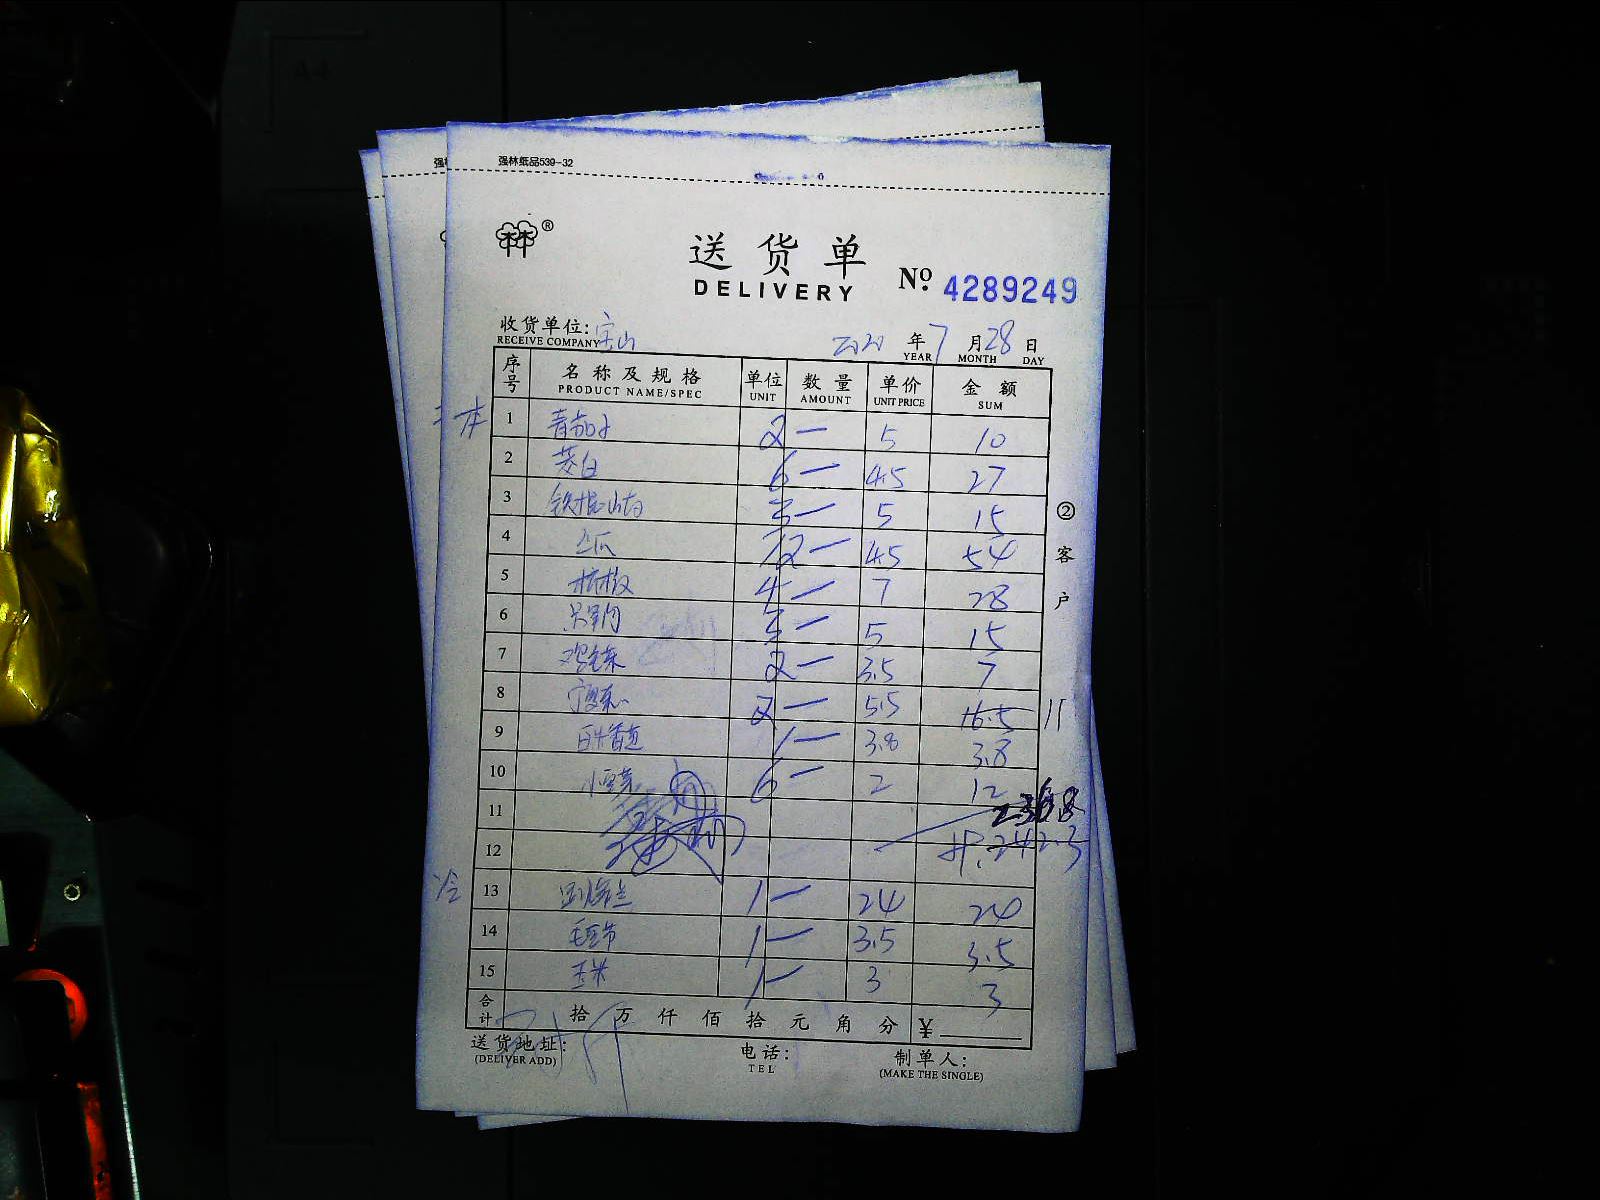 强林纸品539-32
林林®
送货单
DELIVERY
No. 4289249
收货单位: 宝山 2020 年 7 月 28 日
RECEIVE COMPANY YEAR MONTH DAY
序号 名称及规格 单位 数量 单价 金额
PRODUCT NAME/SPEC UNIT AMOUNT UNIT PRICE SUM
1 青茄子 2— 5 10
2 茭白 6— 4.5 27
3 铁棍山药 3— 5 15
4 瓜 12— 4.5 54
5 杭椒 4— 7 28
6 3— 5 15
7 鸡毛菜 2— 3.5 7
8 2— 5.5 16.5 11
9 1— 3.8 3.8
10 小豆芽 6— 2 12
11 236.8
12 242.3
冷 13 1— 24 24
14 毛豆节 1— 3.5 3.5
15 玉米 1— 3 3
合计 拾 万 仟 佰 拾 元 角 分 ¥
送货地址: 电话: 制单人:
(DELIVER ADD) TEL (MAKE THE SINGLE)
②客户